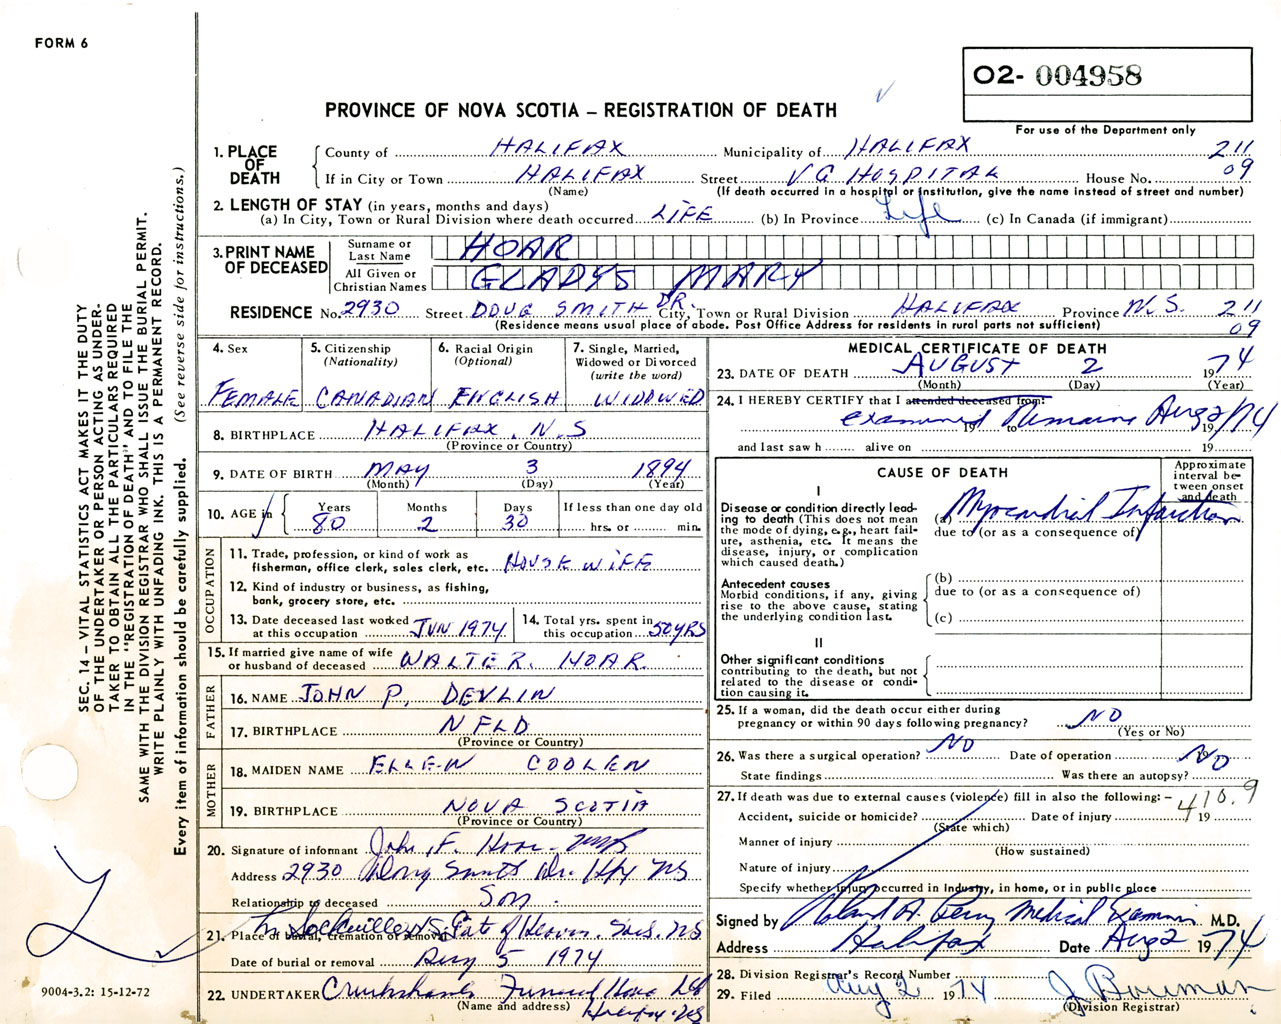 FORM 6
O2- 004958
For use of the Department only
PROVINCE OF NOVA SCOTIA – REGISTRATION OF DEATH
SEC. 14 – VITAL STATISTICS ACT MAKES IT THE DUTY
OF THE UNDERTAKER OR PERSON ACTING AS UNDER-
TAKER TO OBTAIN ALL THE PARTICULARS REQUIRED
IN THE "REGISTRATION OF DEATH" AND TO FILE THE
SAME WITH THE DIVISION REGISTRAR WHO SHALL ISSUE THE BURIAL PERMIT.
WRITE PLAINLY WITH UNFADING INK. THIS IS A PERMANENT RECORD.
Every item of information should be carefully supplied. (See reverse side for instructions.)
1. PLACE OF DEATH
County of HALIFAX Municipality of HALIFAX 211
If in City or Town HALIFAX Street VG HOSPITAL House No. 09
(Name) (If death occurred in a hospital or institution, give the name instead of street and number)
2. LENGTH OF STAY (in years, months and days)
(a) In City, Town or Rural Division where death occurred LIFE (b) In Province Life (c) In Canada (if immigrant)
3. PRINT NAME OF DECEASED
Surname or Last Name HOAR
All Given or Christian Names GLADYS MARY
RESIDENCE No. 2930 Street DOUG SMITH DR. City, Town or Rural Division HALIFAX Province N.S. 211
(Residence means usual place of abode. Post Office Address for residents in rural parts not sufficient) 09
4. Sex FEMALE
5. Citizenship (Nationality) CANADIAN
6. Racial Origin (Optional) ENGLISH
7. Single, Married, Widowed or Divorced (write the word) WIDOWED
8. BIRTHPLACE HALIFAX. N.S
(Province or Country)
9. DATE OF BIRTH MAY 3 1894
(Month) (Day) (Year)
10. AGE in Years 80 Months 2 Days 30 If less than one day old hrs. or min.
OCCUPATION
11. Trade, profession, or kind of work as
fisherman, office clerk, sales clerk, etc. HOUSE WIFE
12. Kind of industry or business, as fishing,
bank, grocery store, etc.
13. Date deceased last worked
at this occupation JUN 1974
14. Total yrs. spent in
this occupation 50 YRS
15. If married give name of wife
or husband of deceased WALTER. HOAR
FATHER
16. NAME JOHN P. DEVLIN
17. BIRTHPLACE NFLD
(Province or Country)
MOTHER
18. MAIDEN NAME ELLEN COOLEN
19. BIRTHPLACE NOVA SCOTIA
(Province or Country)
20. Signature of informant John F. Hoar
Address 2930 Doug Smith Dr. Hfx NS
Relationship to deceased Son.
21. Place of burial, cremation or removal Sackville NS. Gate of Heaven. NS
Date of burial or removal Aug 5 1974
22. UNDERTAKER Cruikshanks Funeral Home Ltd
(Name and address) Halifax NS
9004-3.2: 15-12-72
MEDICAL CERTIFICATE OF DEATH
23. DATE OF DEATH AUGUST 2 1974
(Month) (Day) (Year)
24. I HEREBY CERTIFY that I attended deceased from:
examined remains Aug 2/74
19 to 19
and last saw h alive on 19
CAUSE OF DEATH
Approximate interval between onset and death
I
Disease or condition directly lead-
ing to death (This does not mean
the mode of dying, e.g., heart fail-
ure, asthenia, etc. It means the
disease, injury, or complication
which caused death.)
(a) Myocardial Infarction
due to (or as a consequence of)
Antecedent causes
Morbid conditions, if any, giving
rise to the above cause, stating
the underlying condition last.
(b)
due to (or as a consequence of)
(c)
II
Other significant conditions
contributing to the death, but not
related to the disease or condi-
tion causing it.
25. If a woman, did the death occur either during
pregnancy or within 90 days following pregnancy? NO
(Yes or No)
26. Was there a surgical operation? NO Date of operation 19
State findings Was there an autopsy? NO
27. If death was due to external causes (violence) fill in also the following: – 410.9
Accident, suicide or homicide? Date of injury 19
(State which)
Manner of injury
(How sustained)
Nature of injury
Specify whether injury occurred in industry, in home, or in public place
Signed by Roland A. Perry Medical Examiner M.D.
Address Halifax Date Aug 2 1974
28. Division Registrar's Record Number
29. Filed Aug 2 1974 J Bowman
(Division Registrar)